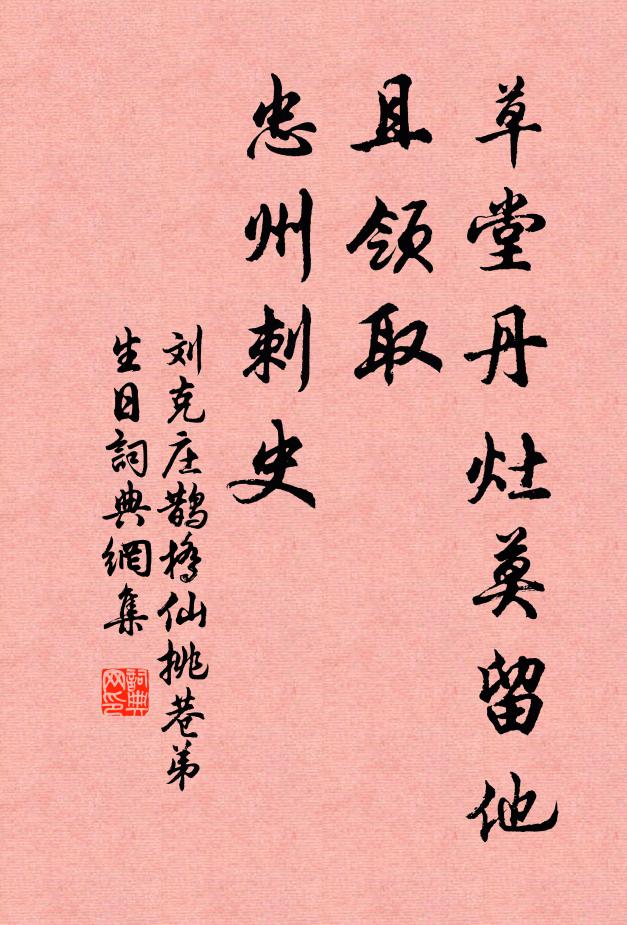 草堂丹灶莫留他
且领取
忠州刺史
刘克庄鹊桥仙桃巷弟
生日詞典網集
詞典
网印